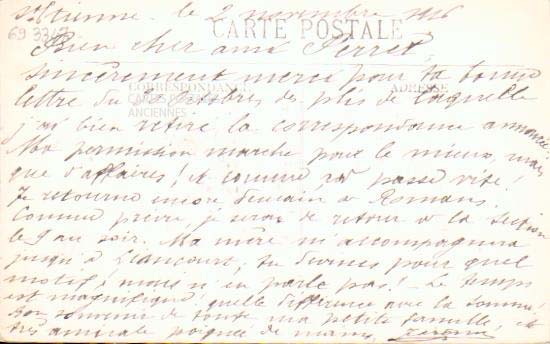 St Etienne. le 2 novembre 1916
CARTE POSTALE
69 33/
Bien cher ami Perret,
sincèrement merci pour ta bonne
CORRESPONDANCE
ADRESSE
lettre du octobre, des plis de laquelle
CARTES
ANCIENNES
j'ai bien retiré la correspondance annoncée
Ma permission marche pour le mieux, mais
que d'affaires! et comme passe vite!
Je retourne encore demain à Romans.
Comme prévu, je serai de retour à la section
le 9 au soir. Ma mère m'accompagnera
jusqu'à Liancourt; tu devines pour quel
motif! mais n'en parle pas! Le temps
est magnifique! quelle différence avec la Somme!
Bon souvenir de toute ma petite famille, et
très amicale poignée de mains,